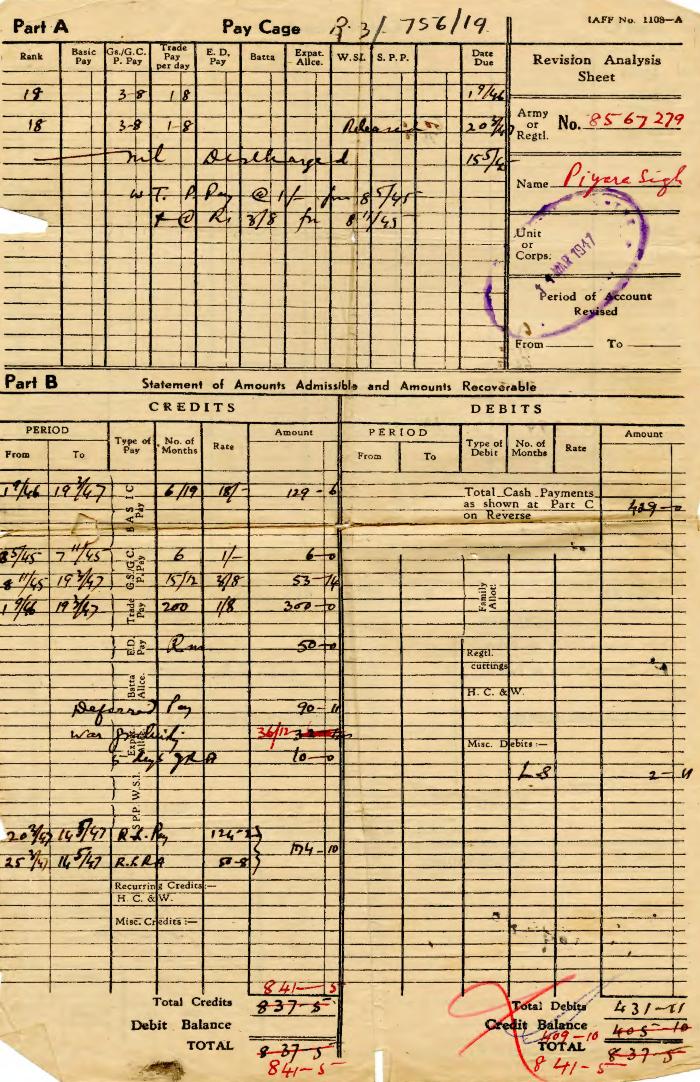 Part A Pay Cage P. 3/ 756/19 IAFF No. 1108—A
Rank Basic Pay Gs./G.C. P. Pay Trade Pay per day E. D. Pay Batta Expat. Allce. W.SI. S.P.P. Date Due
Revision Analysis Sheet
18 3-8 1-8 1 9/46
18 3-8 1-8 Released 20 3/47
nil Discharged 15 5/47
Army or Regtl. No. 8567279
Name Piyara Sigh
W T. P. Pay @ 1/- fm 8 5/45
+ @ Rs 3/8 fm 8 11/45
Unit or Corps.
MAR 1947
Period of Account Revised
From To
Part B Statement of Amounts Admissible and Amounts Recoverable
CREDITS DEBITS
PERIOD Type of Pay No. of Months Rate Amount
From To
PERIOD Type of Debit No. of Months Rate Amount
From To
1 9/46 19 3/47 BASIC Pay 6/19 18/- 129-6
Total Cash Payments as shown at Part C on Reverse 429-0
8 5/45 7 11/45 G.S./G.C. P. Pay 6 1/- 6-0
8 11/45 19 3/47 15/12 3/8 53-14
1 9/46 19 3/47 Trade Pay 200 1/8 300-0
Family Allot.
E.D. Pay 50-0
Regtl. cuttings
Batta Allce.
H. C. & W.
Deferred Pay 90-11
War Gratuity 36/12
Expat. Allce.
Misc. Debits :—
10-0
W.S.I.
L S 2-11
S.P.P.
20 3/47 14 5/47 R.L. Pay 124-2
174-10
25 3/47 14 5/47 R.L.R.A 50-8
Recurring Credits :—
H. C. & W.
Misc. Credits :—
841-5
Total Credits 837-5
Total Debits 431-11
Debit Balance
Credit Balance 409-10 405-10
TOTAL 837-5
841-5
TOTAL 837-5
841-5